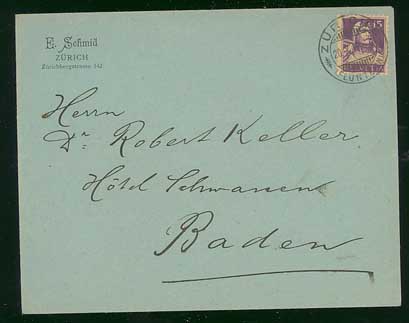 E. Schmid
ZÜRICH
Zürichbergstrasse 142
15
HELVETIA
Herrn
Dr. Robert Keller
Hôtel Schwanen
Baden